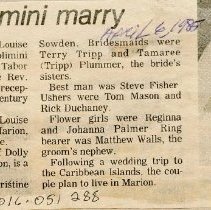 mini marry
APRIL 6, 1985
Louise
olimini
Tabor
e Rev.
recep-
entury
Louise
Marion,
is
Dolly
on, is a
ristine
Sowden. Bridesmaids were
Terry Tripp and Tamaree
(Tripp) Plummer, the bride's
sisters.
Best man was Steve Fisher
Ushers were Tom Mason and
Rick Duchaney.
Flower girls were Reginna
and Johanna Palmer Ring
bearer was Matthew Walls, the
groom's nephew.
Following a wedding trip to
the Caribbean Islands, the cou-
ple plan to live in Marion.
016.051 288